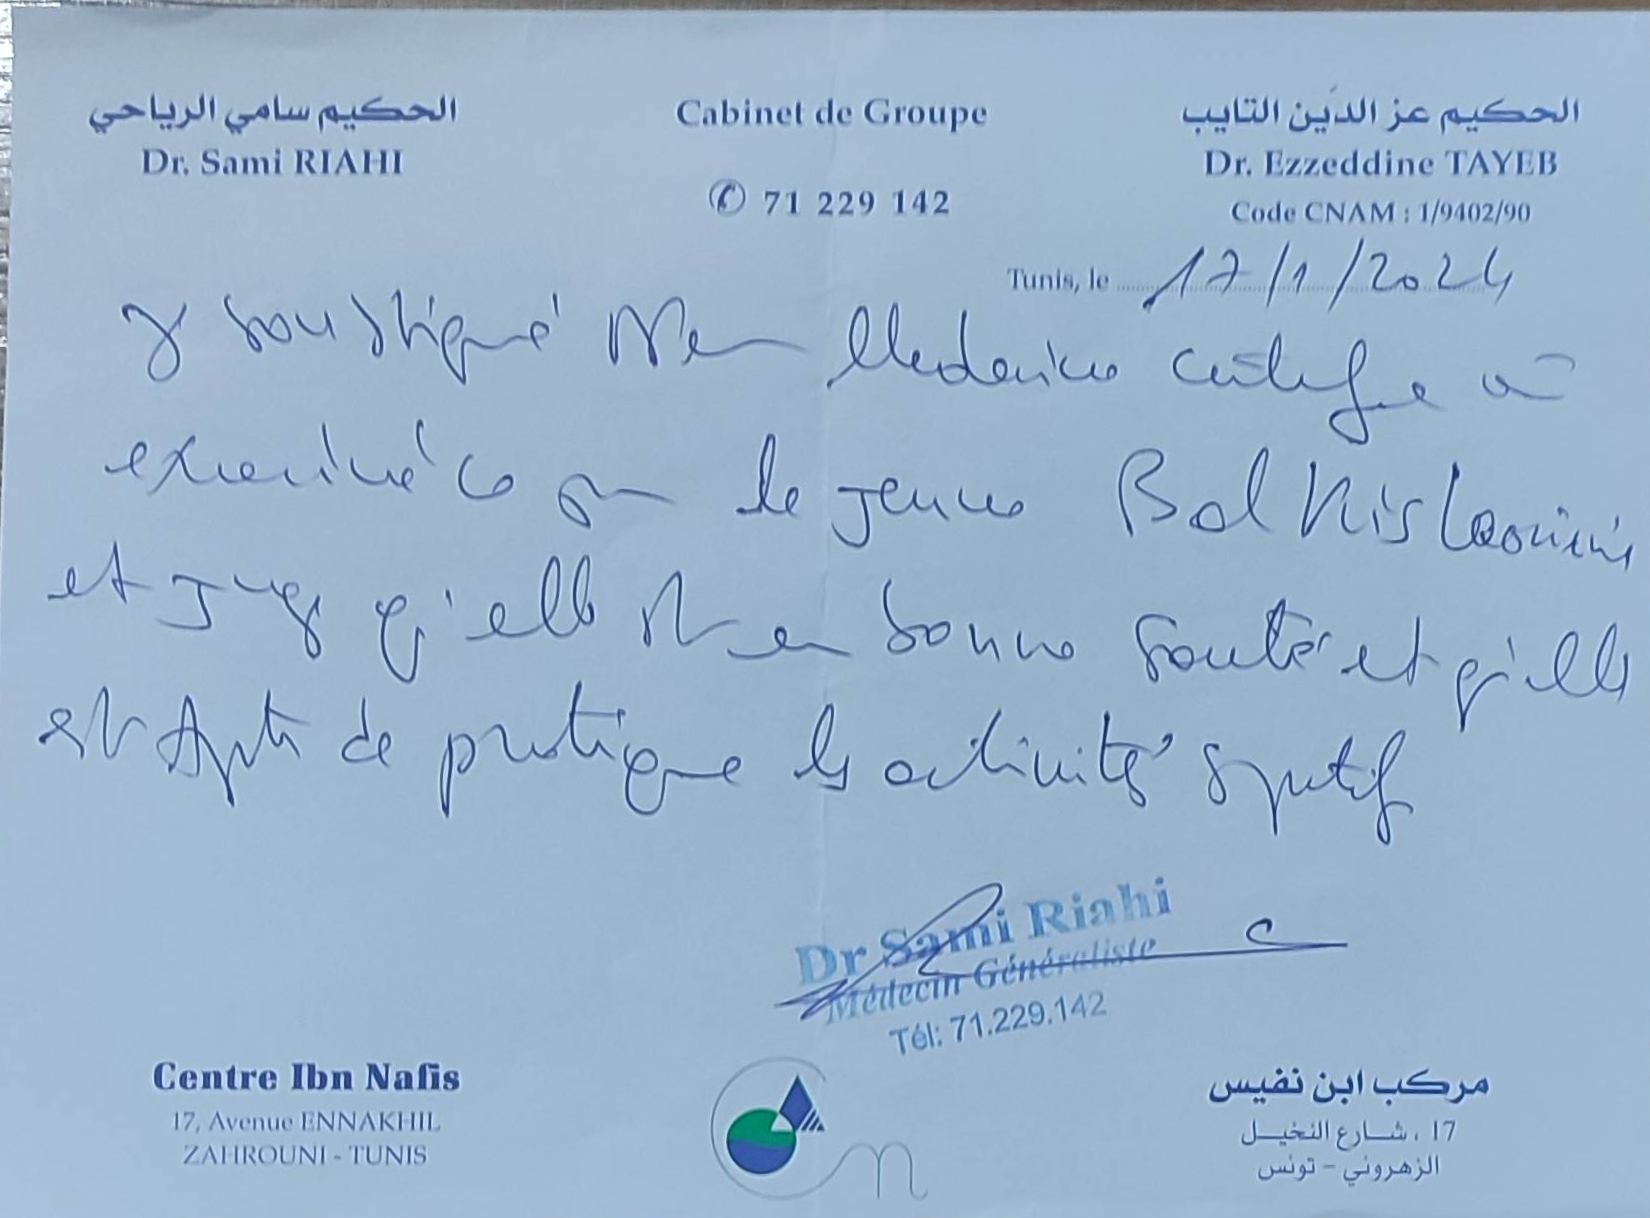 الحكيم سامي الرياحي
Dr. Sami RIAHI
Cabinet de Groupe
✆ 71 229 142
الحكيم عز الدّين التايب
Dr. Ezzeddine TAYEB
Code CNAM : 1/9402/90
Tunis, le 17/1/2024
soussigné Médecine certifie
examiné ce le jeune Balkis
et juge qu'elle est en bonne santé et qu'elle
est Apte de pratique les activités sportif
Dr Sami Riahi
Médecin Généraliste
Tél: 71.229.142
Centre Ibn Nafis
17, Avenue ENNAKHIL
ZAHROUNI - TUNIS
مركب ابن نفيس
17 ، شارع النخيل
الزهروني - تونس